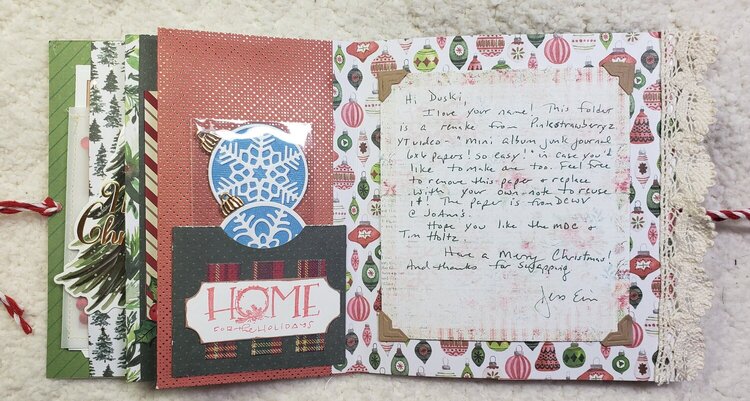 Christm
HOME
FOR the HOLIDAYS
Hi Duski,
I love your name! This folder
is a remake from Pinkstrawberryz
YT video - "mini album junk journal
6x6 papers! So easy!" in case you'd
like to make one too. Feel free
to remove this paper & replace
with your own note to reuse
it! The paper is from DCWV
@ JoAnns.
Hope you like the MDC &
Tim Holtz.
Have a Merry Christmas!
And thanks for swapping
Jess